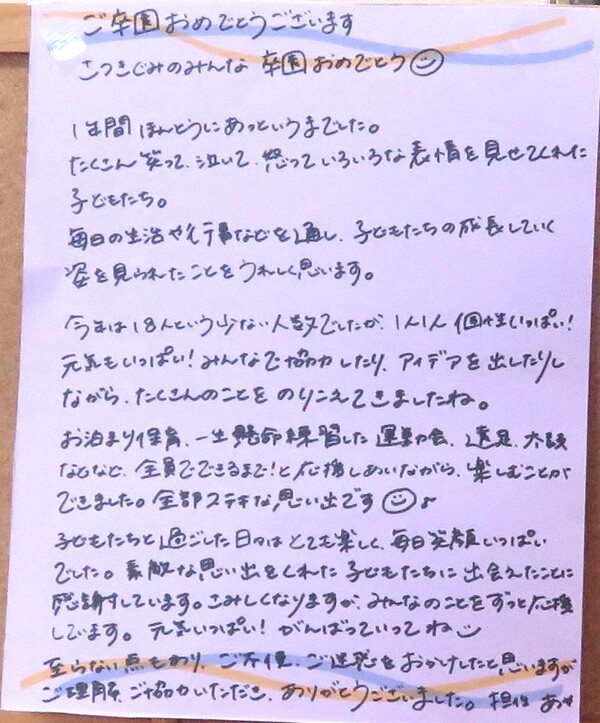 ご卒園おめでとうございます
さつきぐみのみんな 卒園おめでとう
1年間ほんとうにあっというまでした。
たくさん笑って、泣いて、怒っていろいろな表情を見せてくれた
子どもたち。
毎日の生活や行事などを通し、子どもたちの成長していく
姿を見られたことをうれしく思います。
今年は18人という少ない人数でしたが、1人1人個性いっぱい!
元気もいっぱい!みんなで協力したり、アイデアを出したりし
ながら、たくさんのことをのりこえてきましたね。
お泊まり保育、一生懸命練習した運動会、遠足、太鼓
などなど、全員でできるまで!と応援しあいながら、楽しむことが
できました。全部ステキな思い出です♪
子どもたちと過ごした日々はとても楽しく、毎日笑顔いっぱい
でした。素敵な思い出をくれた子どもたちに出会えたことに
感謝しています。さみしくなりますが、みんなのことをずっと応援
しています。元気いっぱい!がんばっていってね
至らない点もあり、ご不便、ご迷惑をおかけしたと思いますが
ご理解、ご協力いただき、ありがとうございました。担任